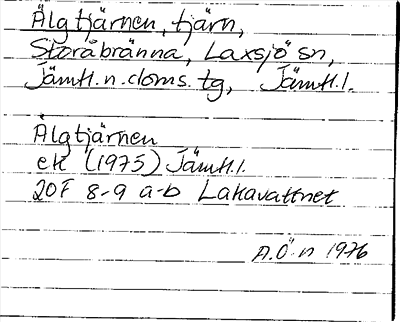 Älgtjärnen, tjärn,
Storåbränna, Laxsjö sn,
Jämtl. n. doms. tg, Jämtl. l.
Älgtjärnen
ek (1975) Jämtl. l.
20F 8-9 a-b Lakavattnet
A.Ö-n 1976